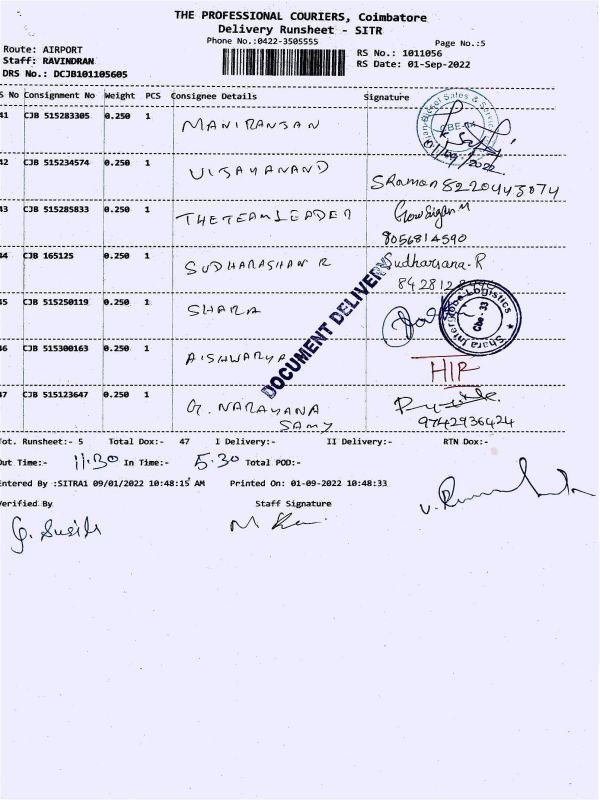 THE PROFESSIONAL COURIERS, Coimbatore
Delivery Runsheet - SITR
Phone No.:0422-3505555
Page No.:5
Route: AIRPORT
Staff: RAVINDRAN
DRS No.: DCJB101105605
RS No.: 1011056
RS Date: 01-Sep-2022
S No Consignment No Weight PCS Consignee Details Signature
41 CJB 515283305 0.250 1 MANIRANJAN
CBE-04
42 CJB 515234574 0.250 1 VIJAYANAND
SRaman 8220443074
43 CJB 515285833 0.250 1 THETEAMLEADER
8056814590
44 CJB 165125 0.250 1 SUDHARASHAN R Sudharsana.R
45 CJB 515250119 0.250 1 SHARA
Shara Interglobe Logistics
Cbe - 33
DOCUMENT DELIVERY
46 CJB 515300163 0.250 1 AISHWARYA
HIR
47 CJB 515123647 0.250 1 G. NARAYANA
SAMY
9742936424
Tot. Runsheet:- 5 Total Dox:- 47 I Delivery:- II Delivery:- RTN Dox:-
Out Time:- 11.30 In Time:- 5.30 Total POD:-
Entered By :SITRA1 09/01/2022 10:48:15 AM Printed On: 01-09-2022 10:48:33
Verified By Staff Signature